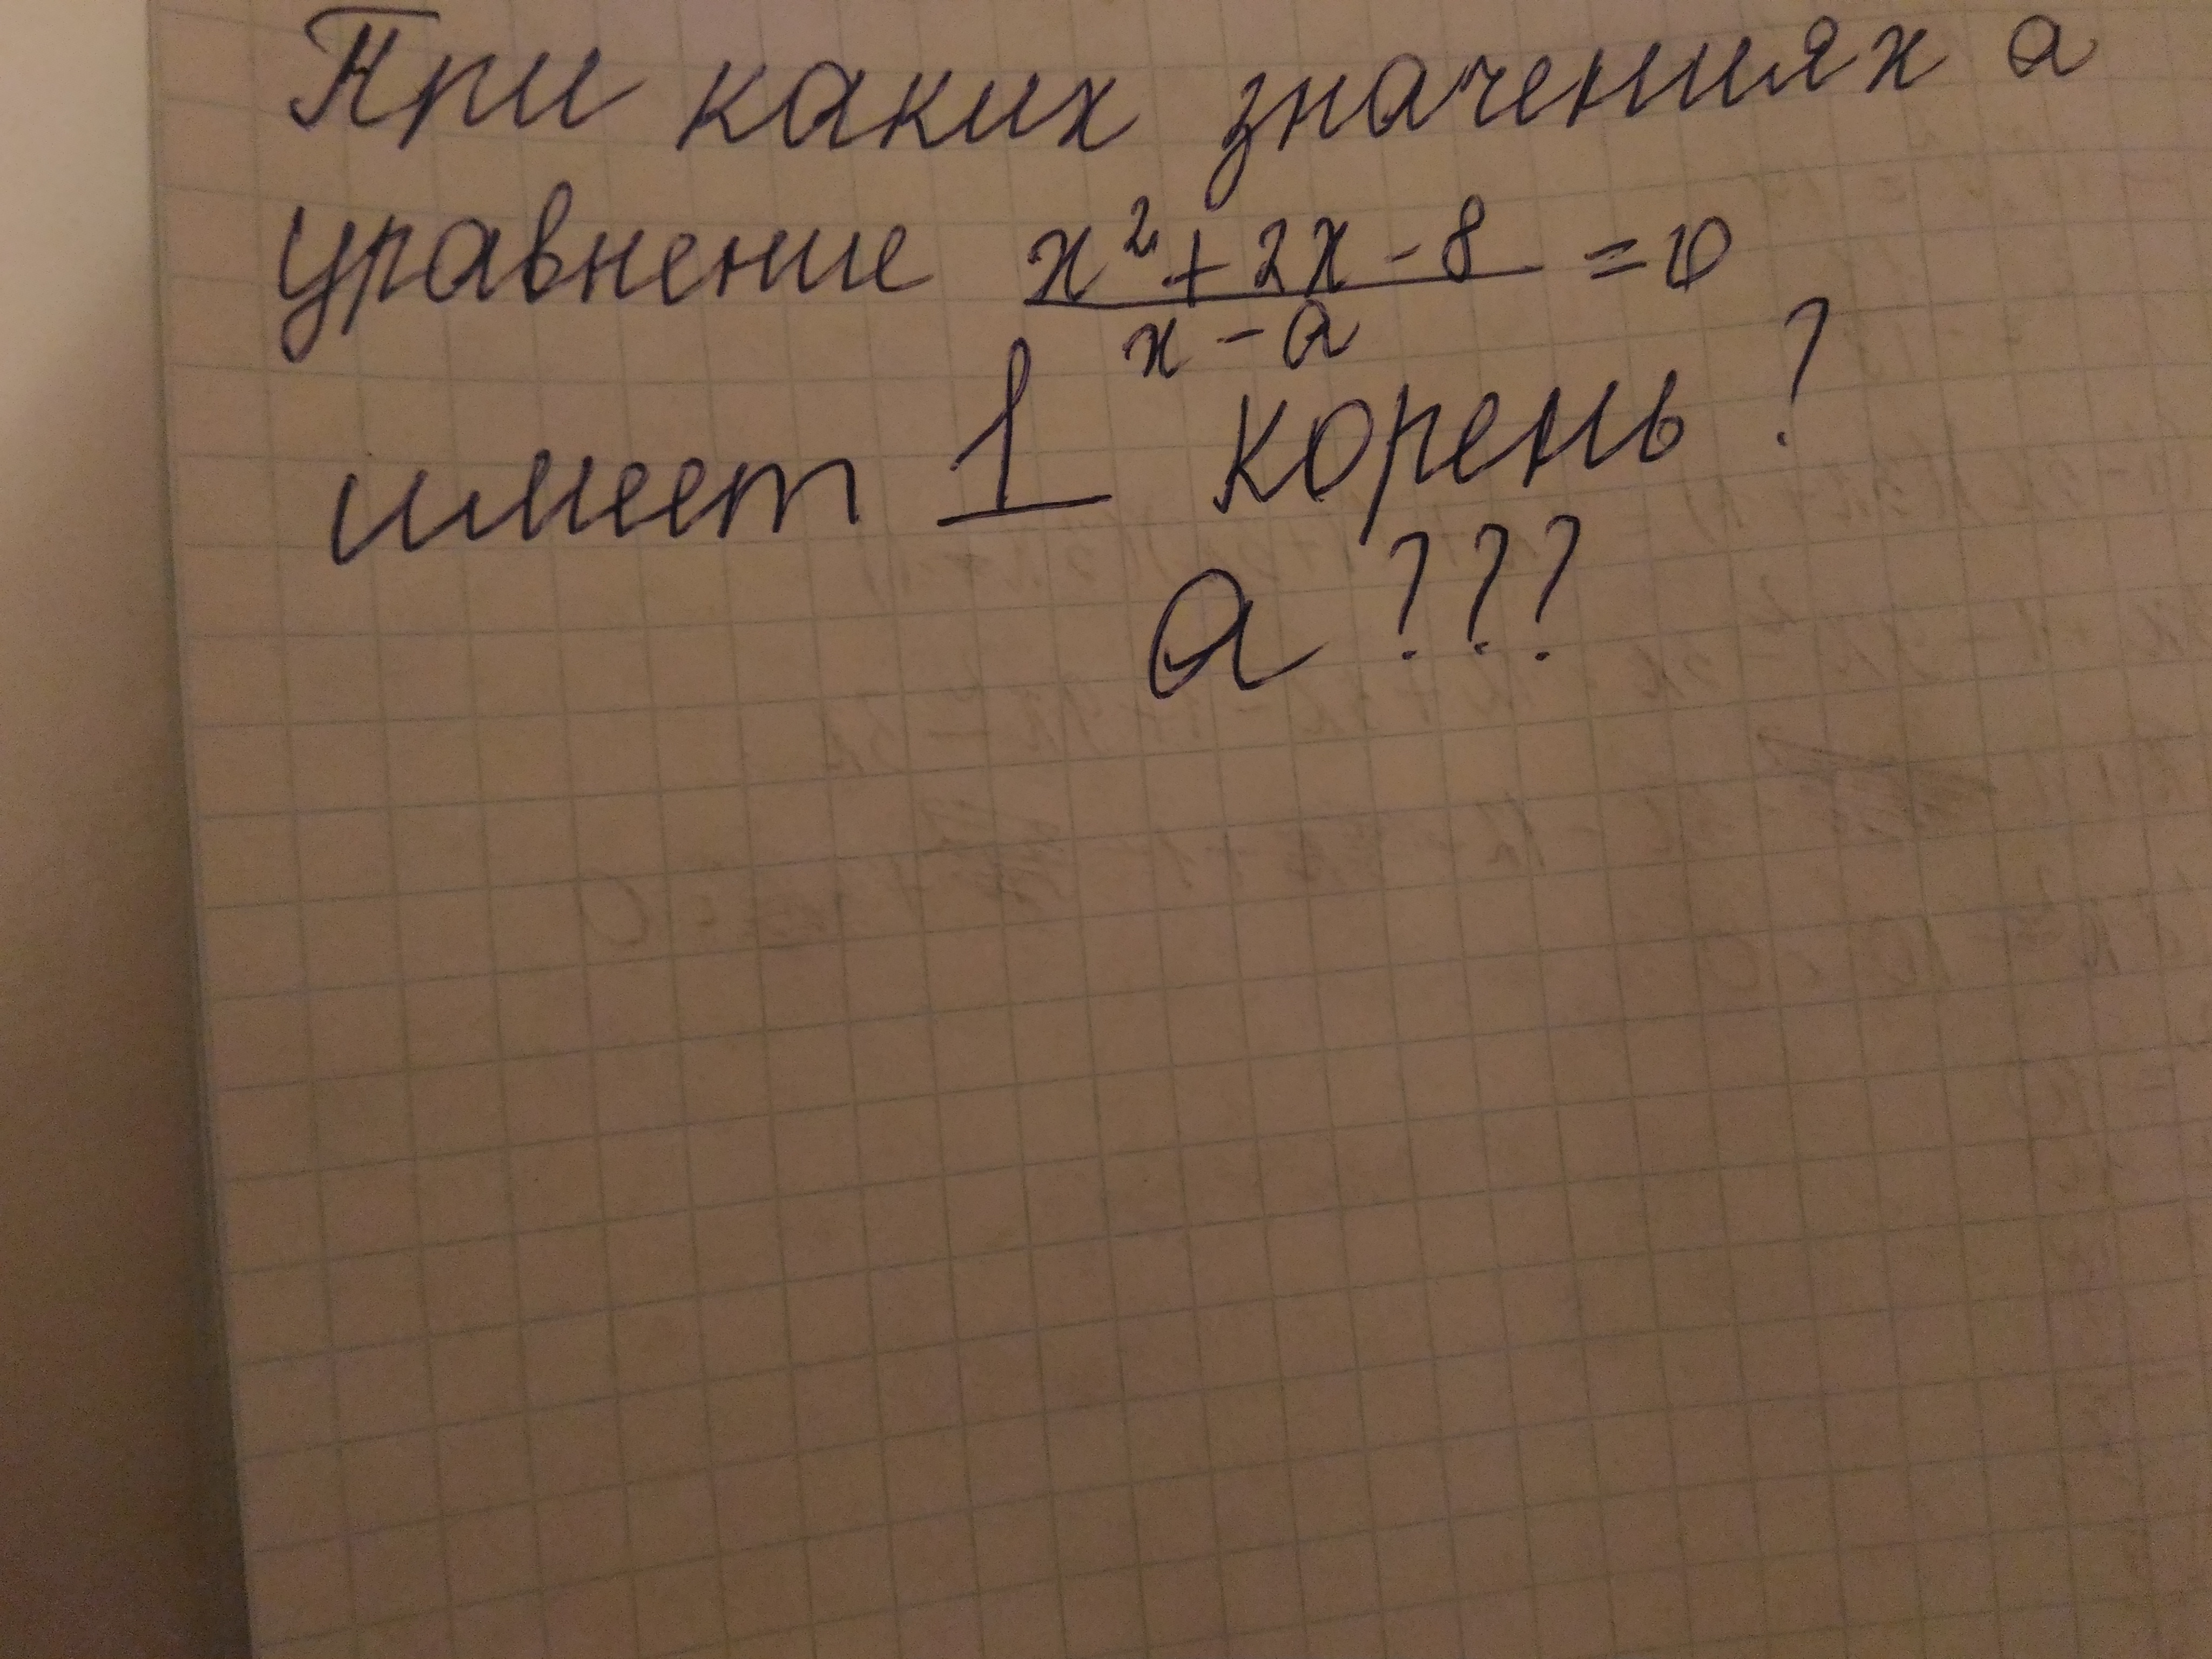 При каких значениях а
уравнение x² + 2x - 8 / x - a = 0
имеет 1 корень?
а???